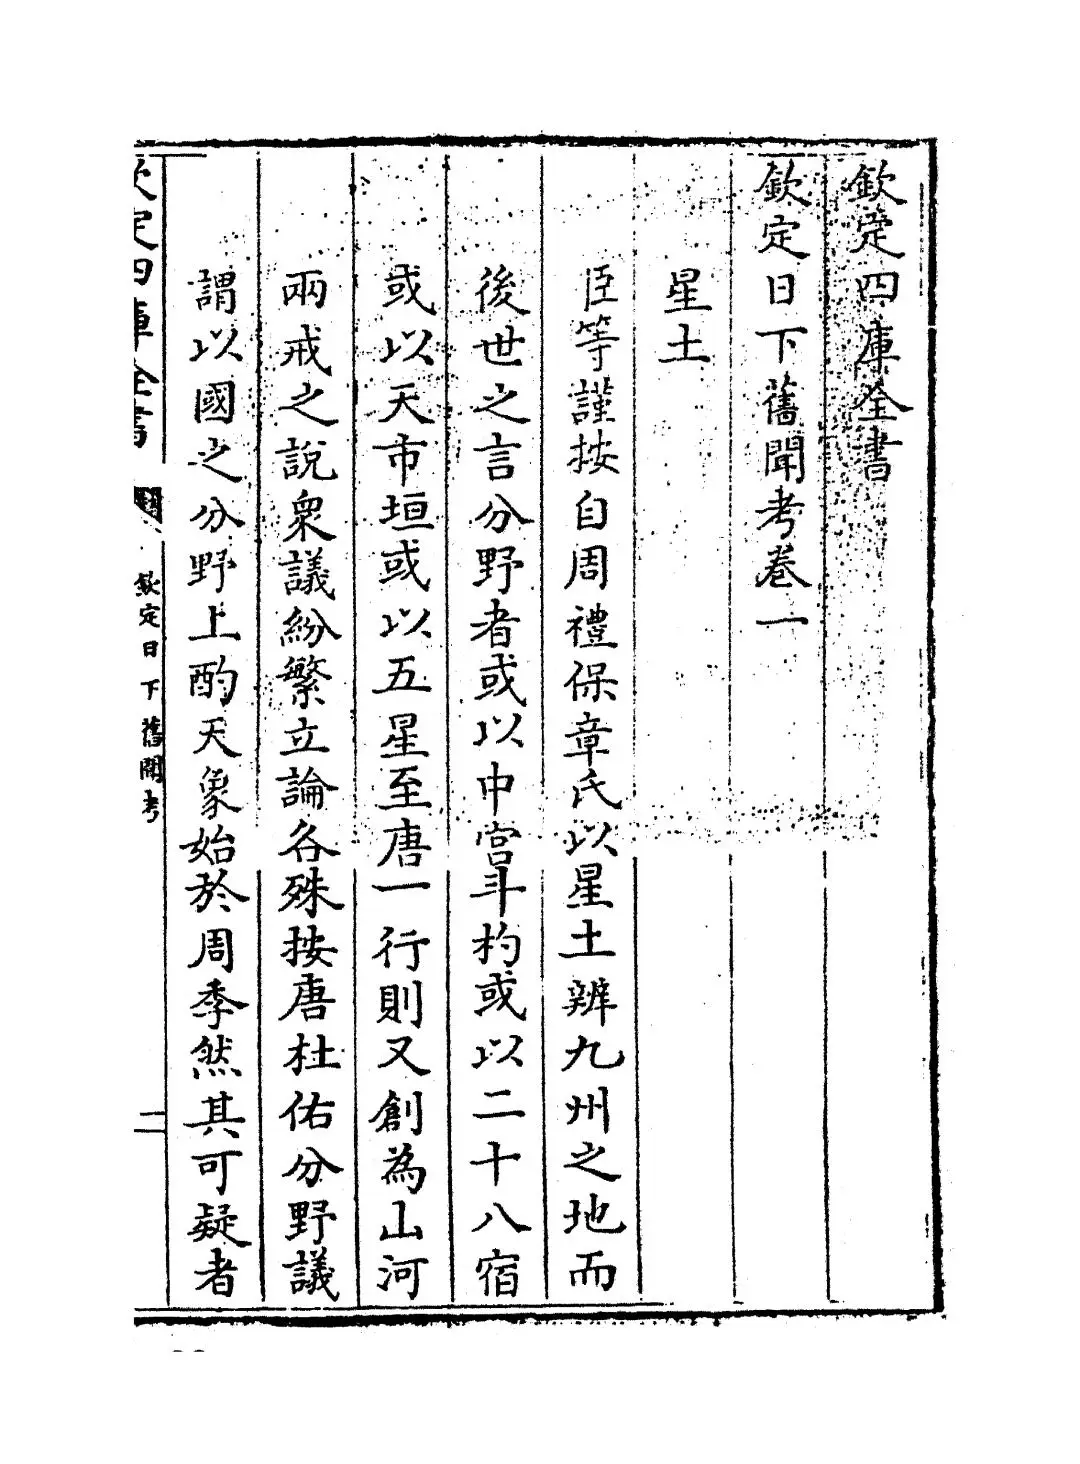 欽定四庫全書
欽定日下舊聞考卷一
星土
臣等謹按自周禮保章氏以星土辨九州之地而
後世之言分野者或以中宫斗杓或以二十八宿
或以天市垣或以五星至唐一行則又創為山河
兩戒之說衆議紛繁立論各殊按唐杜佑分野議
謂以國之分野上酌天象始於周季然其可疑者
欽定四庫全書
欽定日下舊聞考
二